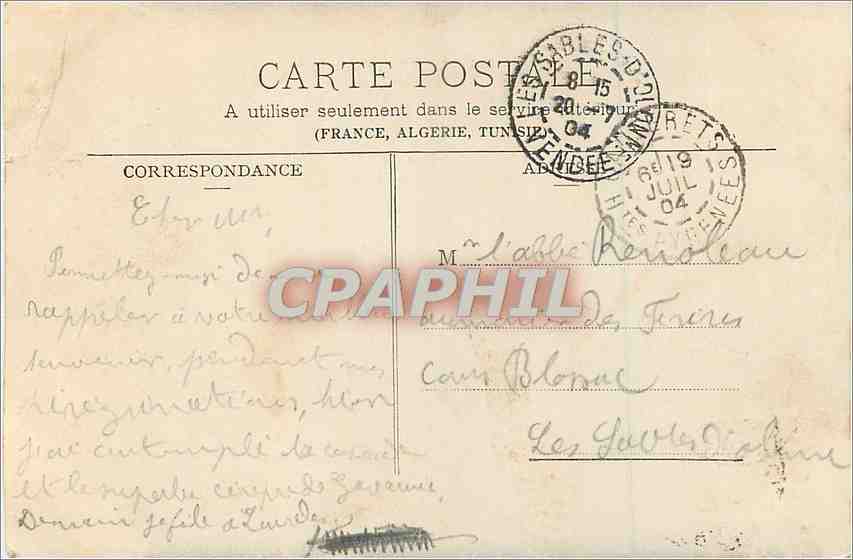 CARTE POSTALE
A utiliser seulement dans le service intérieur
(FRANCE, ALGERIE, TUNISIE)
LES SABLES-D'OLONNE
8-15
20-7
04
VENDÉE
6E 19
JUIL
04
HTES PYRENEES
CORRESPONDANCE
ADRESSE
Cher Mr,
Permettez-moi de
rappeler à votre
souvenir, pendant mes
pérégrinations, hier
j'ai contemplé la cascade
et le superbe cirque de Gavarnie,
Demain je file à Lourdes
Mr l'abbé Renoleau
aumônier des Frères
Cours Blossac
Les Sables d'olonne
CPAPHIL